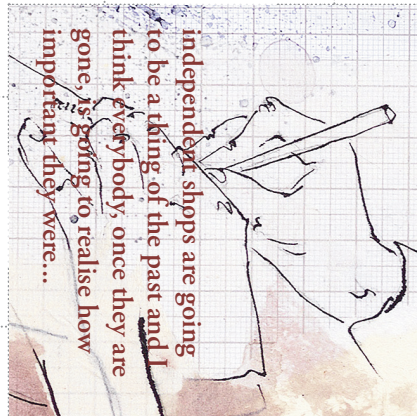 independent shops are going
to be a thing of the past and I
think everybody, once they are
gone, is going to realise how
important they were...